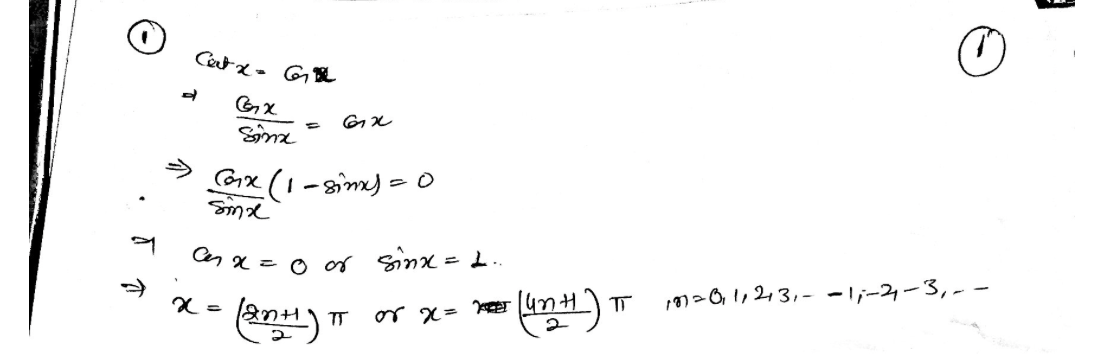 ① ①
Cot x = Cos x
⇒ Cos x / Sin x = Cos x
⇒ Cos x / Sin x (1 - sin x) = 0
⇒ Cos x = 0 or sin x = 1..
⇒ x = ((2n+1)/2) π or x = ((4n+1)/2) π , n = 0, 1, 2, 3, - -1, -2, -3, - -